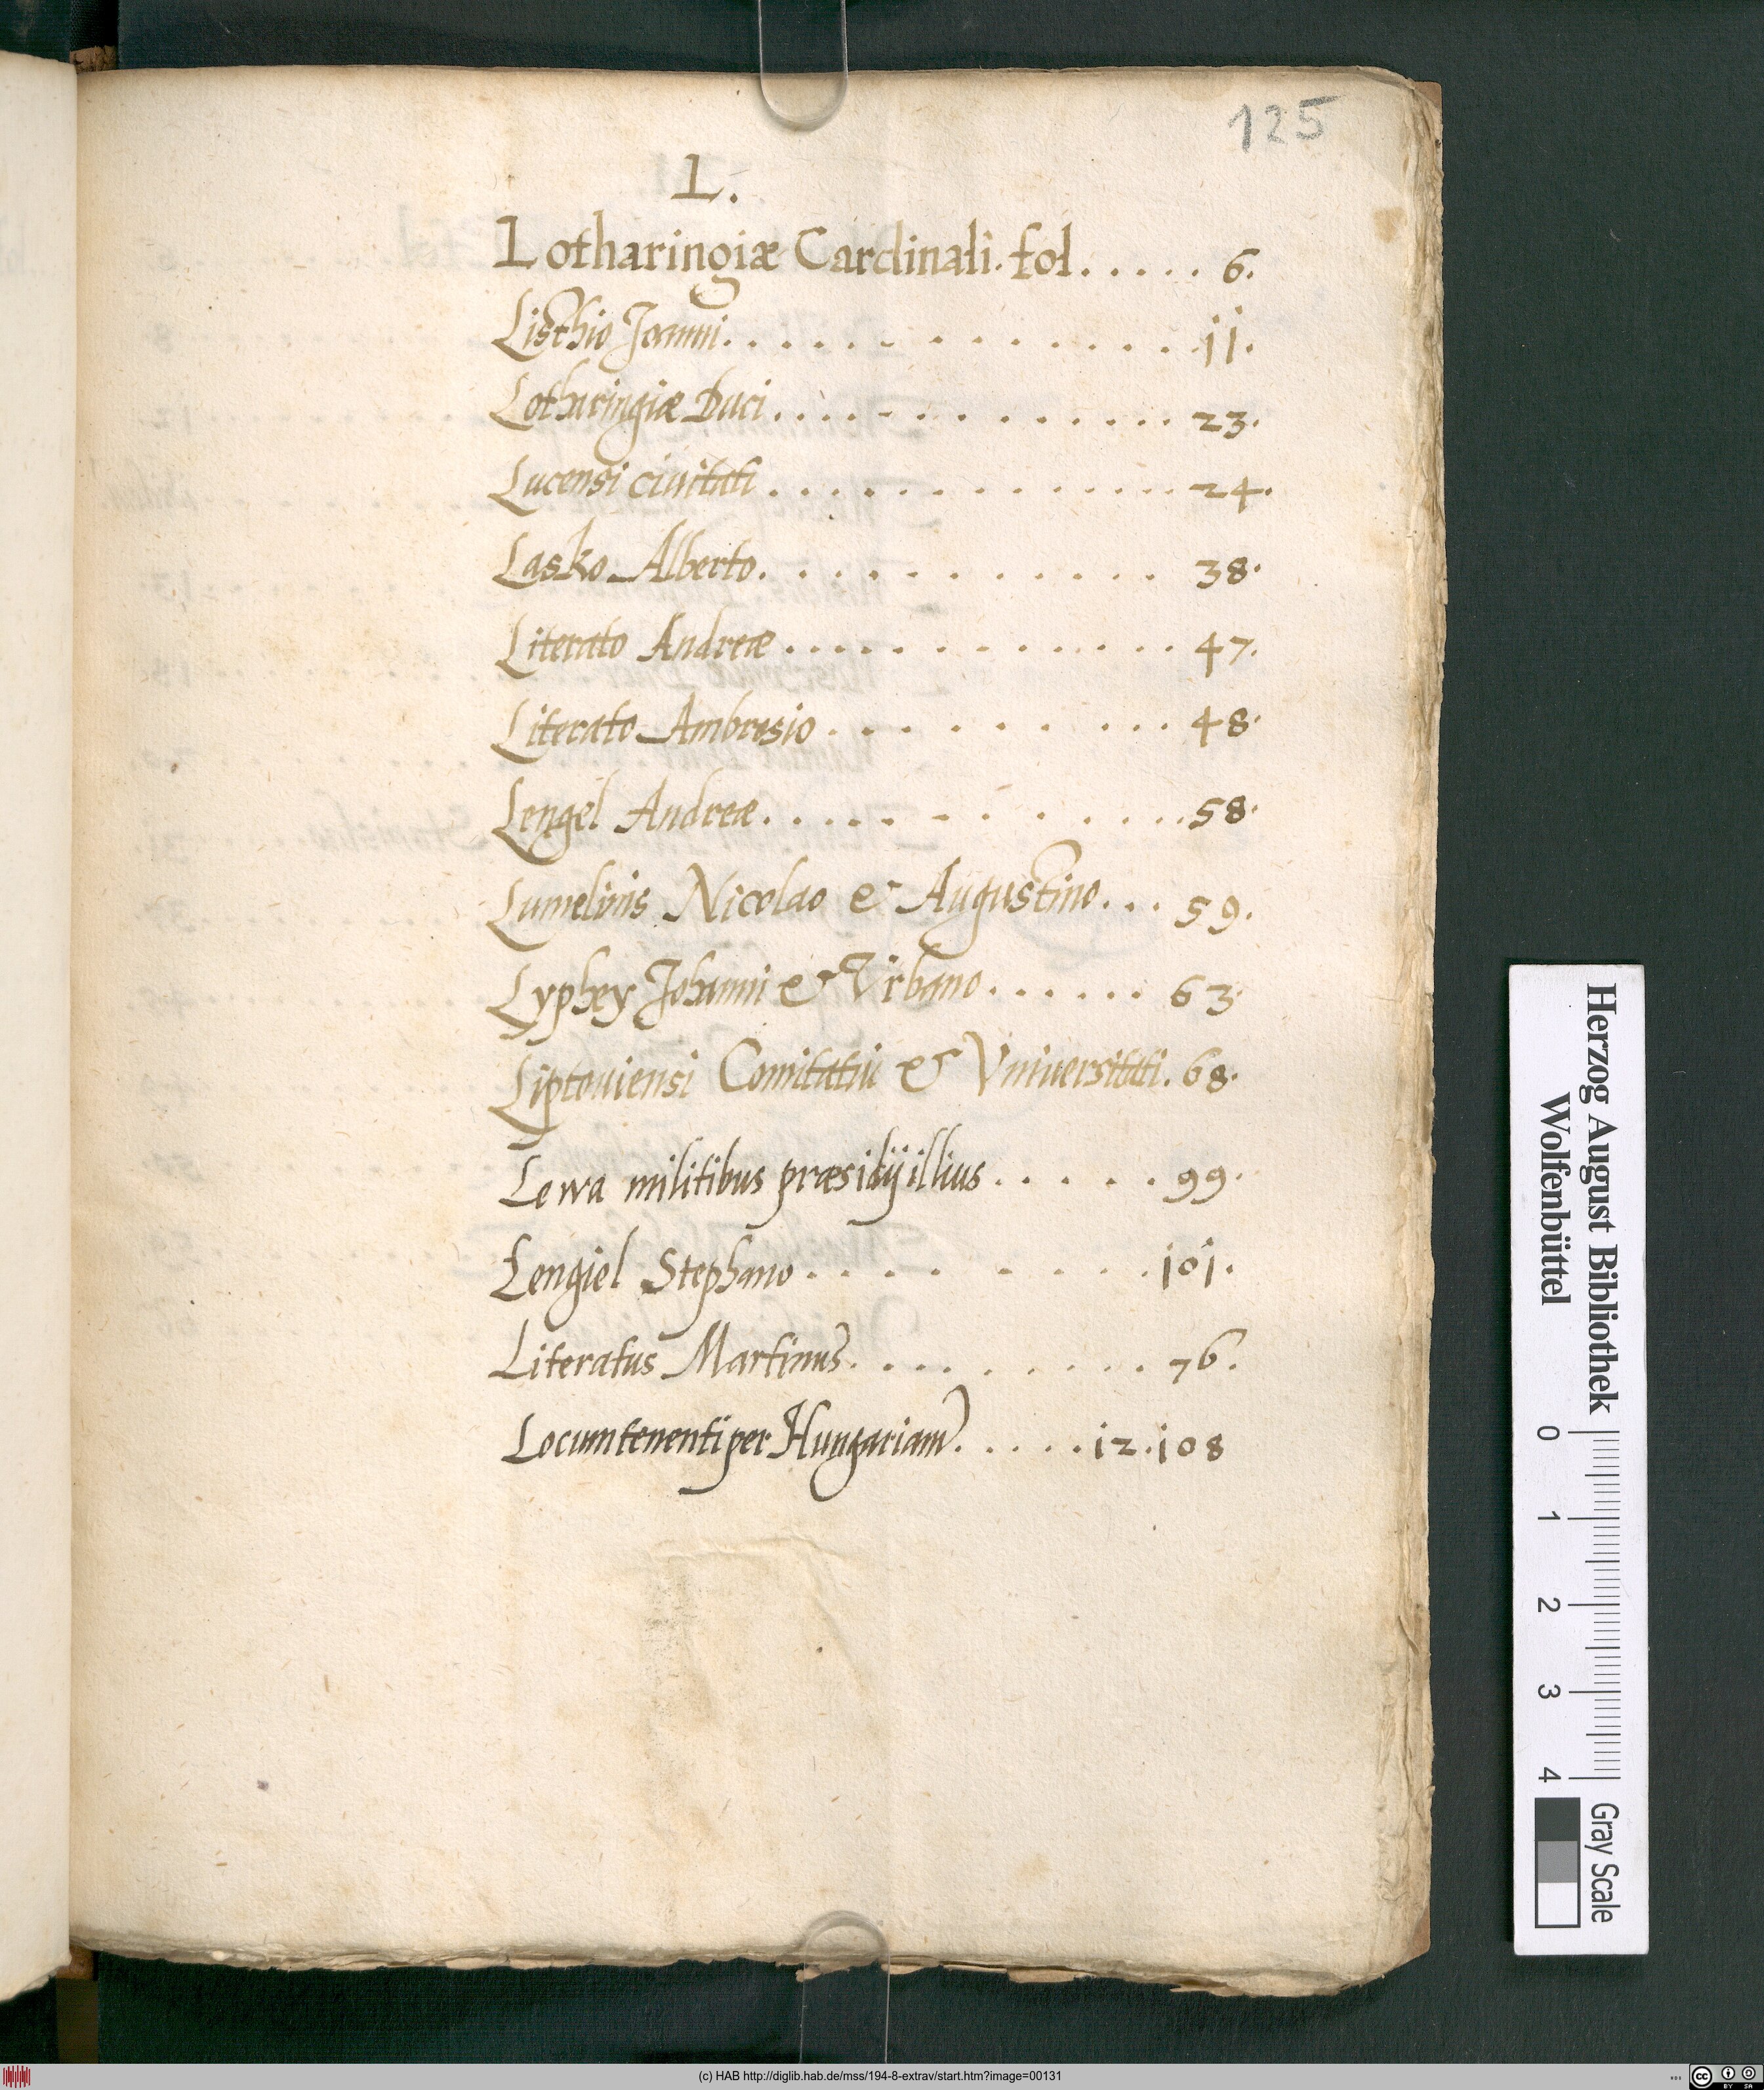 125
L.
Lotharingiæ Cardinali. fol. . . . . . 6.
Listhio Joanni. . . . . . . . . . . . . . . 11.
Lotharingiæ Duci. . . . . . . . . . . . . . 23.
Lucensi ciuitati . . . . . . . . . . . . . . 24.
Lasko Alberto. . . . . . . . . . . . 38.
Literato Andreæ . . . . . . . . . . . . . 47.
Literato Ambrosio . . . . . . . . . . 48.
Lengel Andreæ. . . . . . . . . . . . . 58.
Lumelinis Nicolao & Augustino. . . 59.
Lyphey Johanni & Vrbano . . . . . . 63.
Liptouiensi Comitatui & Vniuersitati. 68.
Lewa militibus præsidij illius . . . . . . 99.
Lengiel Stephano . . . . . . . . . 101.
Literatus Martinus. . . . . . . . . . 76.
Locumtenenti per Hungariam. . . . . . 12. 108
Herzog August Bibliothek
Wolfenbüttel
0 1 2 3 4
Gray Scale
(c) HAB http://diglib.hab.de/mss/194-8-extrav/start.htm?image=00131